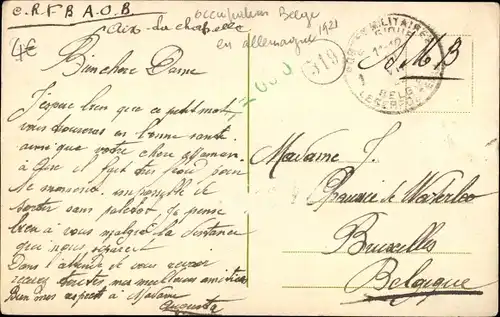 C.R.F.B A.O.B
4€
Aix-la chapelle
occupation Belge
en allemagne 1921
318
POSTES MILITAIRES
BELG
S.M.B
Bien chère Dame
J'espère bien que ce petit mot
vous trouvera en bonne santé
ainsi que votre chère Maman.
il fait très peu bon
ce moment impossible de
sortir sans paletot. Je pense
bien à vous malgré la distance
qui nous sépare
Dans l'attente de vous revoir
recevez toutes mes meilleures amitiés
Bien mes respects à Madame
Augusta
Madame J.
Chaussée de Waterloo
Bruxelles
Belgique